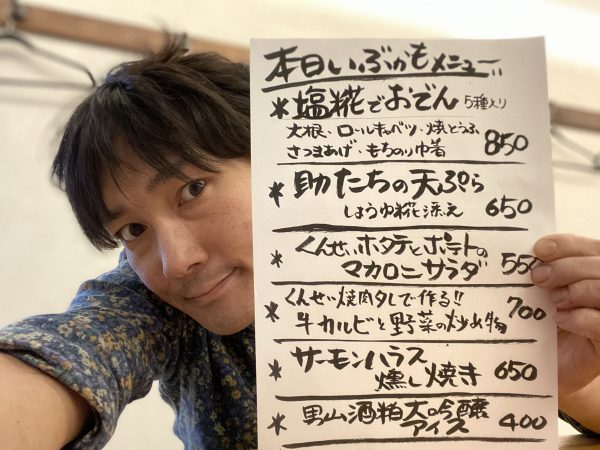 本日いぶかもメニュー!!
*塩糀でおでん 5種入り
大根、ロールキャベツ・焼とうふ
さつまあげ・もちのり巾着 850
*助たちの天ぷら
しょうゆ糀添え 650
*くんせいホタテとポテトの
マカロニサラダ 550
*くんせい焼肉タレで作る!!
牛カルビと野菜の炒め物 700
*サーモンハラス
燻し焼き 650
*男山酒粕大吟醸
アイス 400